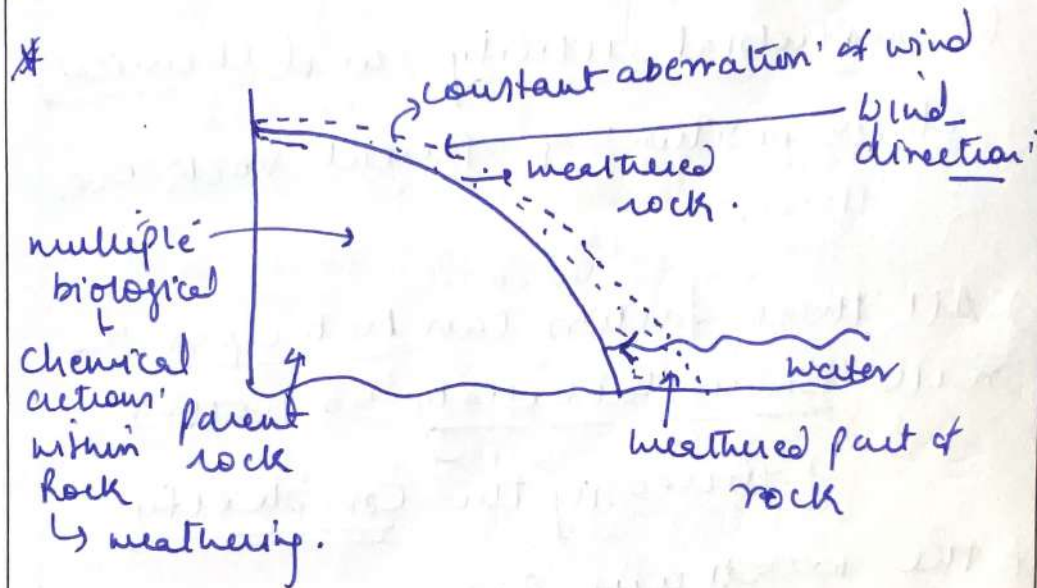 *
constant aberration of wind
wind
direction
weathered
rock.
multiple
biological
+
Chemical
actions
within
Rock
↳ weathering.
parent
rock
water
weathered part of
rock